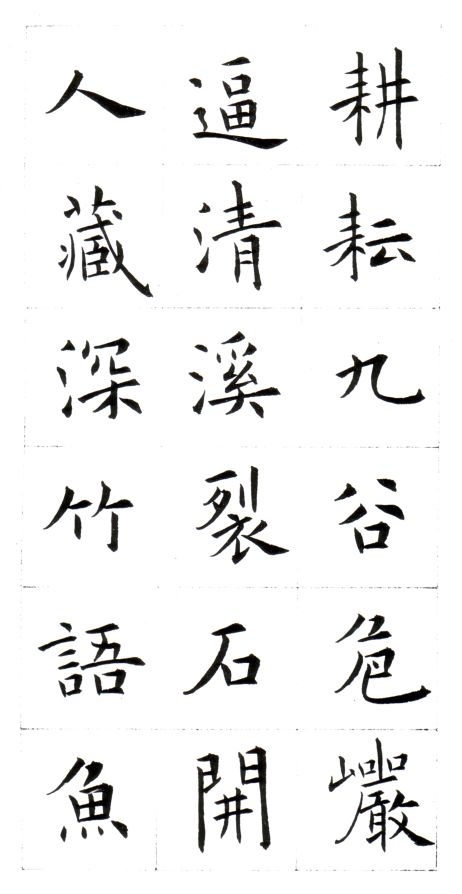 耕耘九谷危巗
逼清溪裂石開
人藏深竹語魚